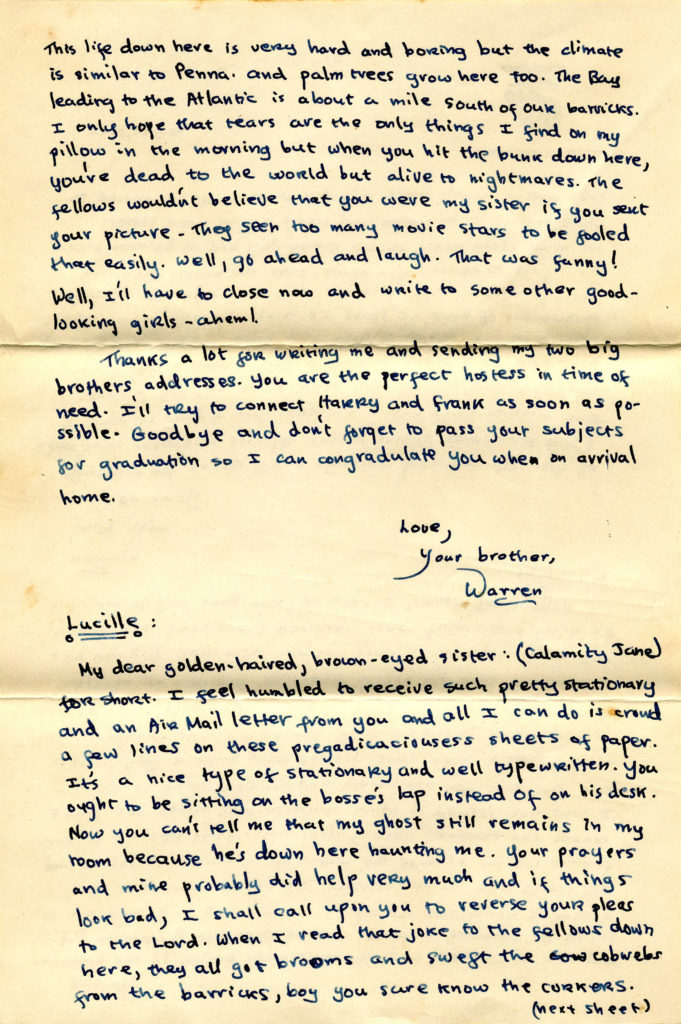 This life down here is very hard and boring but the climate
is similar to Penna. and palm trees grow here too. The Bay
leading to the Atlantic is about a mile south of our barricks.
I only hope that tears are the only things I find on my
pillow in the morning but when you hit the bunk down here,
you're dead to the world but alive to nightmares. The
fellows wouldn't believe that you were my sister if you sent
your picture - They seen too many movie stars to be fooled
that easily. Well, go ahead and laugh. That was funny!
Well, I'll have to close now and write to some other good-
looking girls - ahem!
Thanks a lot for writing me and sending my two big
brothers addresses. You are the perfect hostess in time of
need. I'll try to connect Harry and Frank as soon as po-
ssible. Goodbye and don't forget to pass your subjects
for graduation so I can congradulate you when on arrival
home.
Love,
Your brother,
Warren
Lucille:
My dear golden-haired, brown-eyed sister: (Calamity Jane)
for short. I feel humbled to receive such pretty stationary
and an Air Mail letter from you and all I can do is crowd
a few lines on these pregadicaciousess sheets of paper.
It's a nice type of stationary and well typewritten. You
ought to be sitting on the bosse's lap instead of on his desk.
Now you can't tell me that my ghost still remains in my
room because he's down here haunting me. Your prayers
and mine probably did help very much and if things
look bad, I shall call upon you to reverse your pleas
to the Lord. When I read that joke to the fellows down
here, they all got brooms and swept the cow cobwebs
from the barricks, boy you sure know the corkers.
(next sheet)